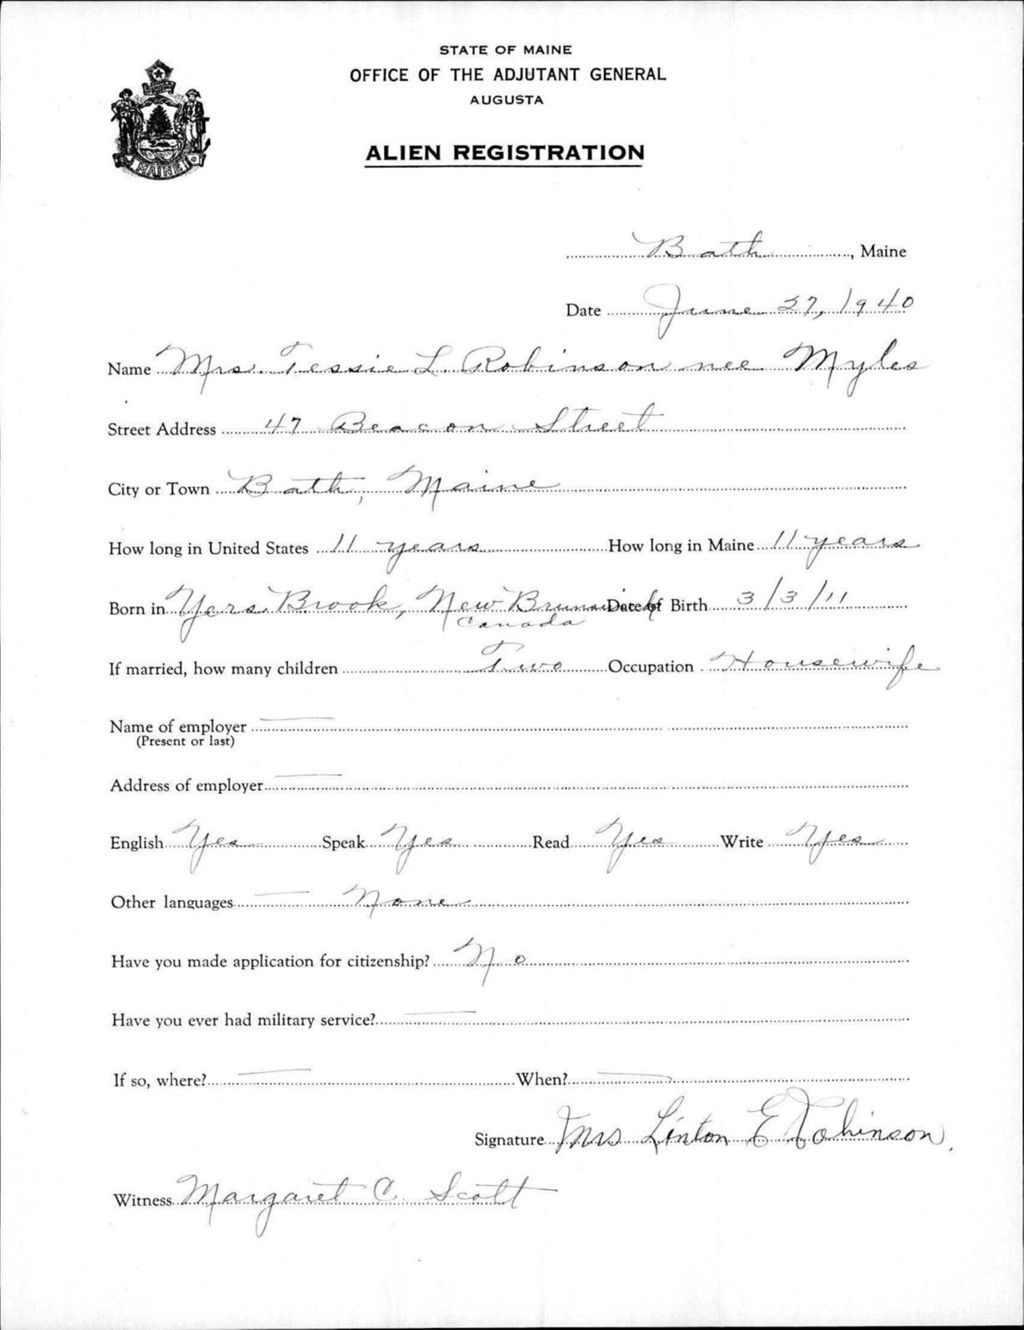 STATE OF MAINE
OFFICE OF THE ADJUTANT GENERAL
AUGUSTA
ALIEN REGISTRATION
MAINE
Bath, Maine
Date June 27, 1940
Name Mrs. Tessie L. Robinson nee Myles
Street Address 47 Beacon Street
City or Town Bath, Maine
How long in United States 11 years How long in Maine 11 years
Born in Yers Brook, New Brunswick Date of Birth 3/3/11
Canada
If married, how many children Two Occupation Housewife
Name of employer
(Present or last)
Address of employer
English Yes Speak Yes Read Yes Write Yes
Other languages None
Have you made application for citizenship? No
Have you ever had military service?
If so, where? When?
Signature Mrs Linton E Robinson.
Witness Margaret C. Scott